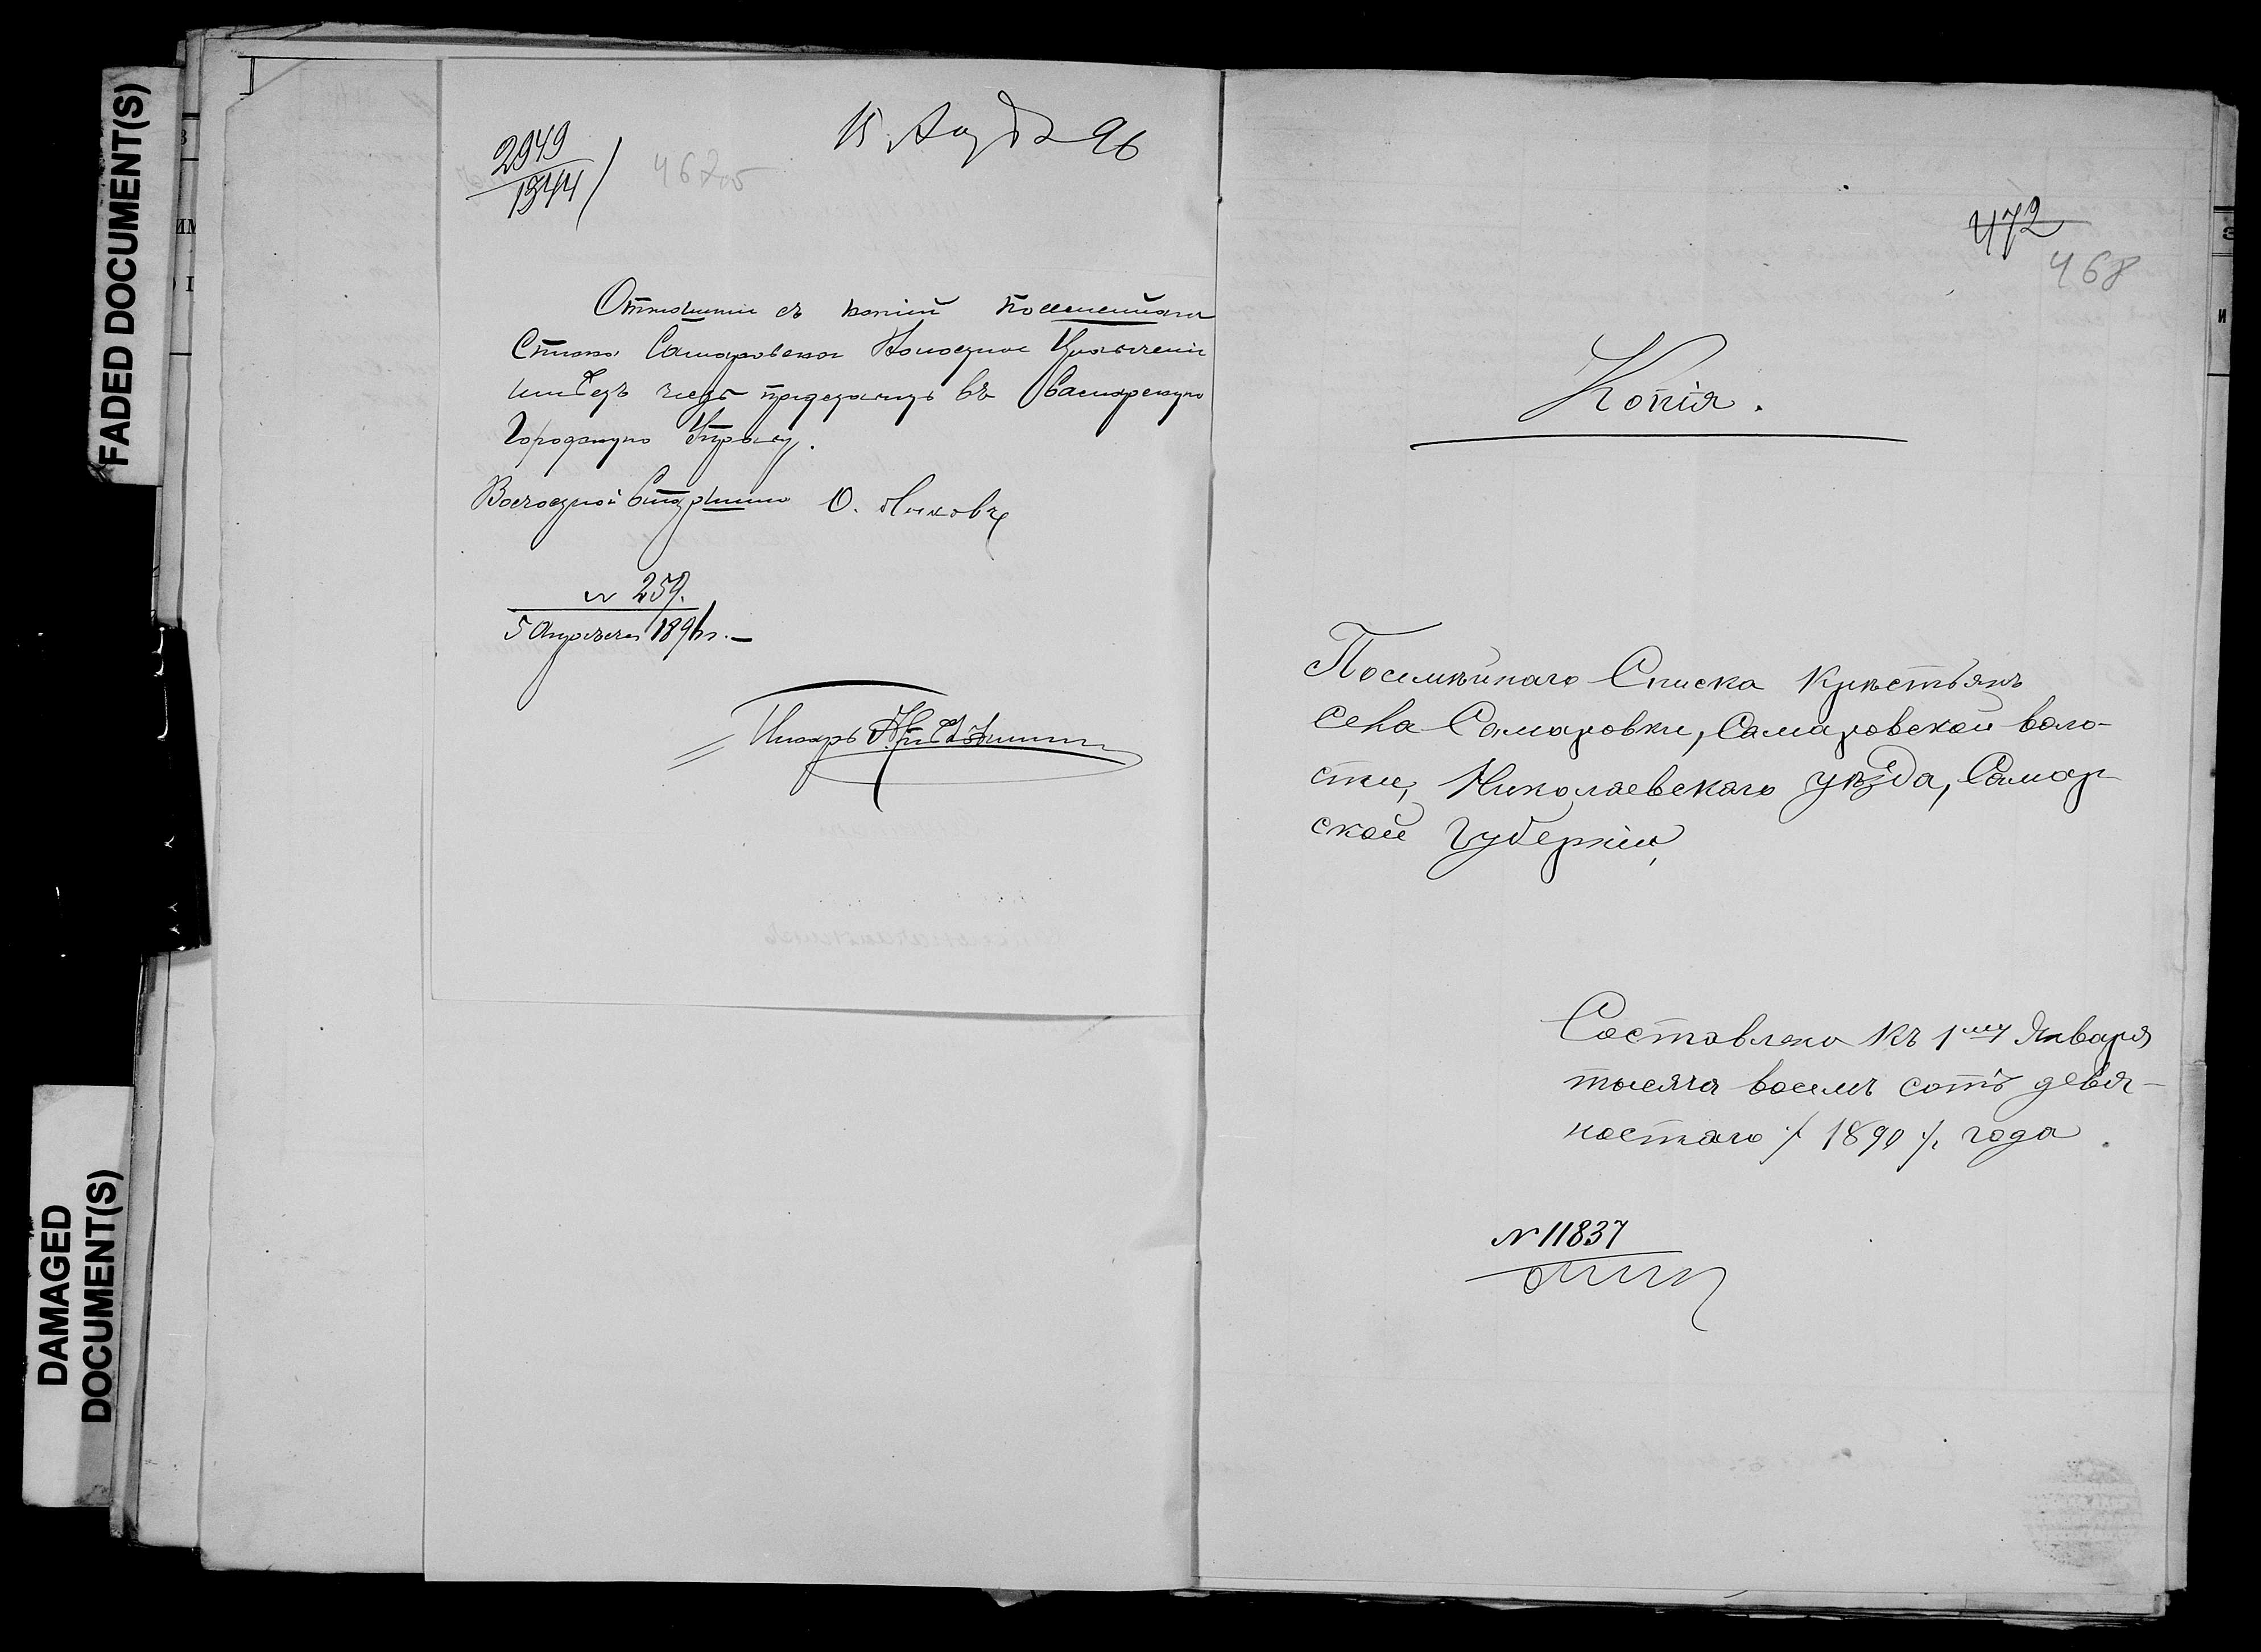 FADED DOCUMENT(S)
DAMAGED
DOCUMENT(S)
2949
1344
15 96
съ копіей посемейнаго
Списка Самаровское Волостное
имѣетъ честь въ Самарскую
Городскую Управу.
Волостной Старшина
№ 259.
5 Апрѣля 1896 г.
Писарь
472
468
Копія.
Посемѣйнаго Списка Крѣстьянъ
Села Самаровки, Самаровской воло-
сти, Николаевскаго уѣзда, Самар-
ской Губерніи,
Составлено Къ 1му Января
тысяча восемь сотъ девя-
ностаго /1890/. года.
№ 11837